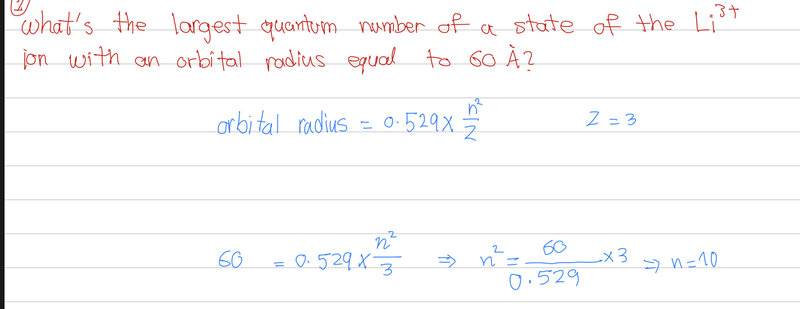 (1)
What's the largest quantum number of a state of the Li³⁺
ion with an orbital radius equal to 60 Å?
orbital radius = 0.529 × n²/Z Z = 3
60 = 0.529 × n²/3 ⇒ n² = 60/0.529 × 3 ⇒ n=10